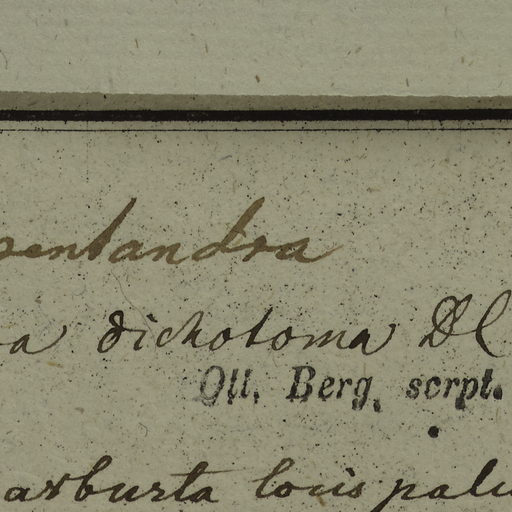 pentandra
a dichotoma DC
Ott. Berg. scrpt.
arbusta locis palu